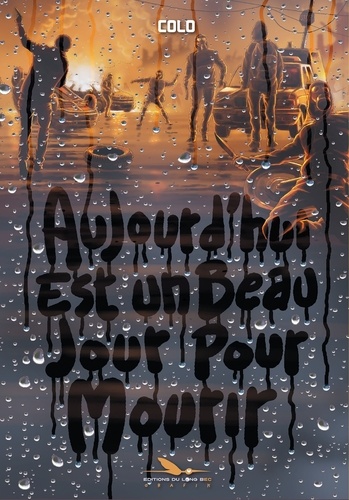 COLO
Aujourd'hui
Est un Beau
Jour Pour
Mourir
EDITIONS DU LONG BEC